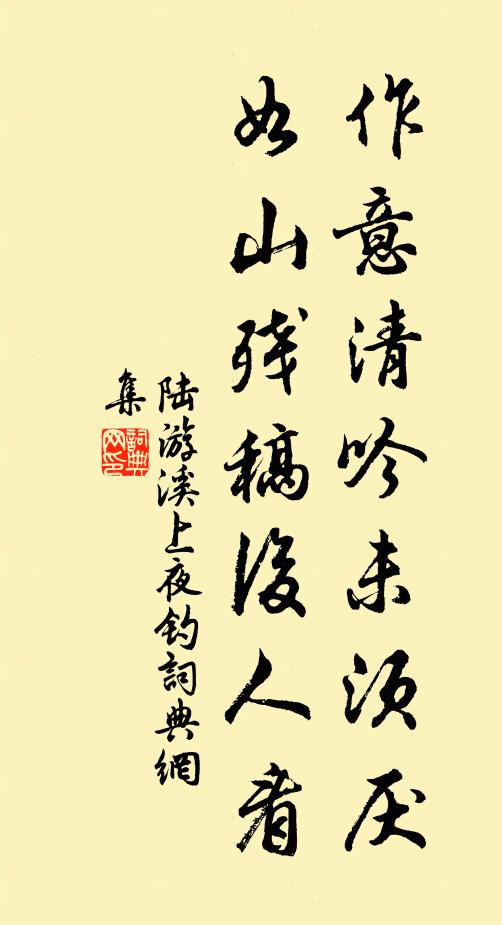 作意清吟未须厌
如山残稿後人看
陆游溪上夜钓詞典網
集
詞典
网印